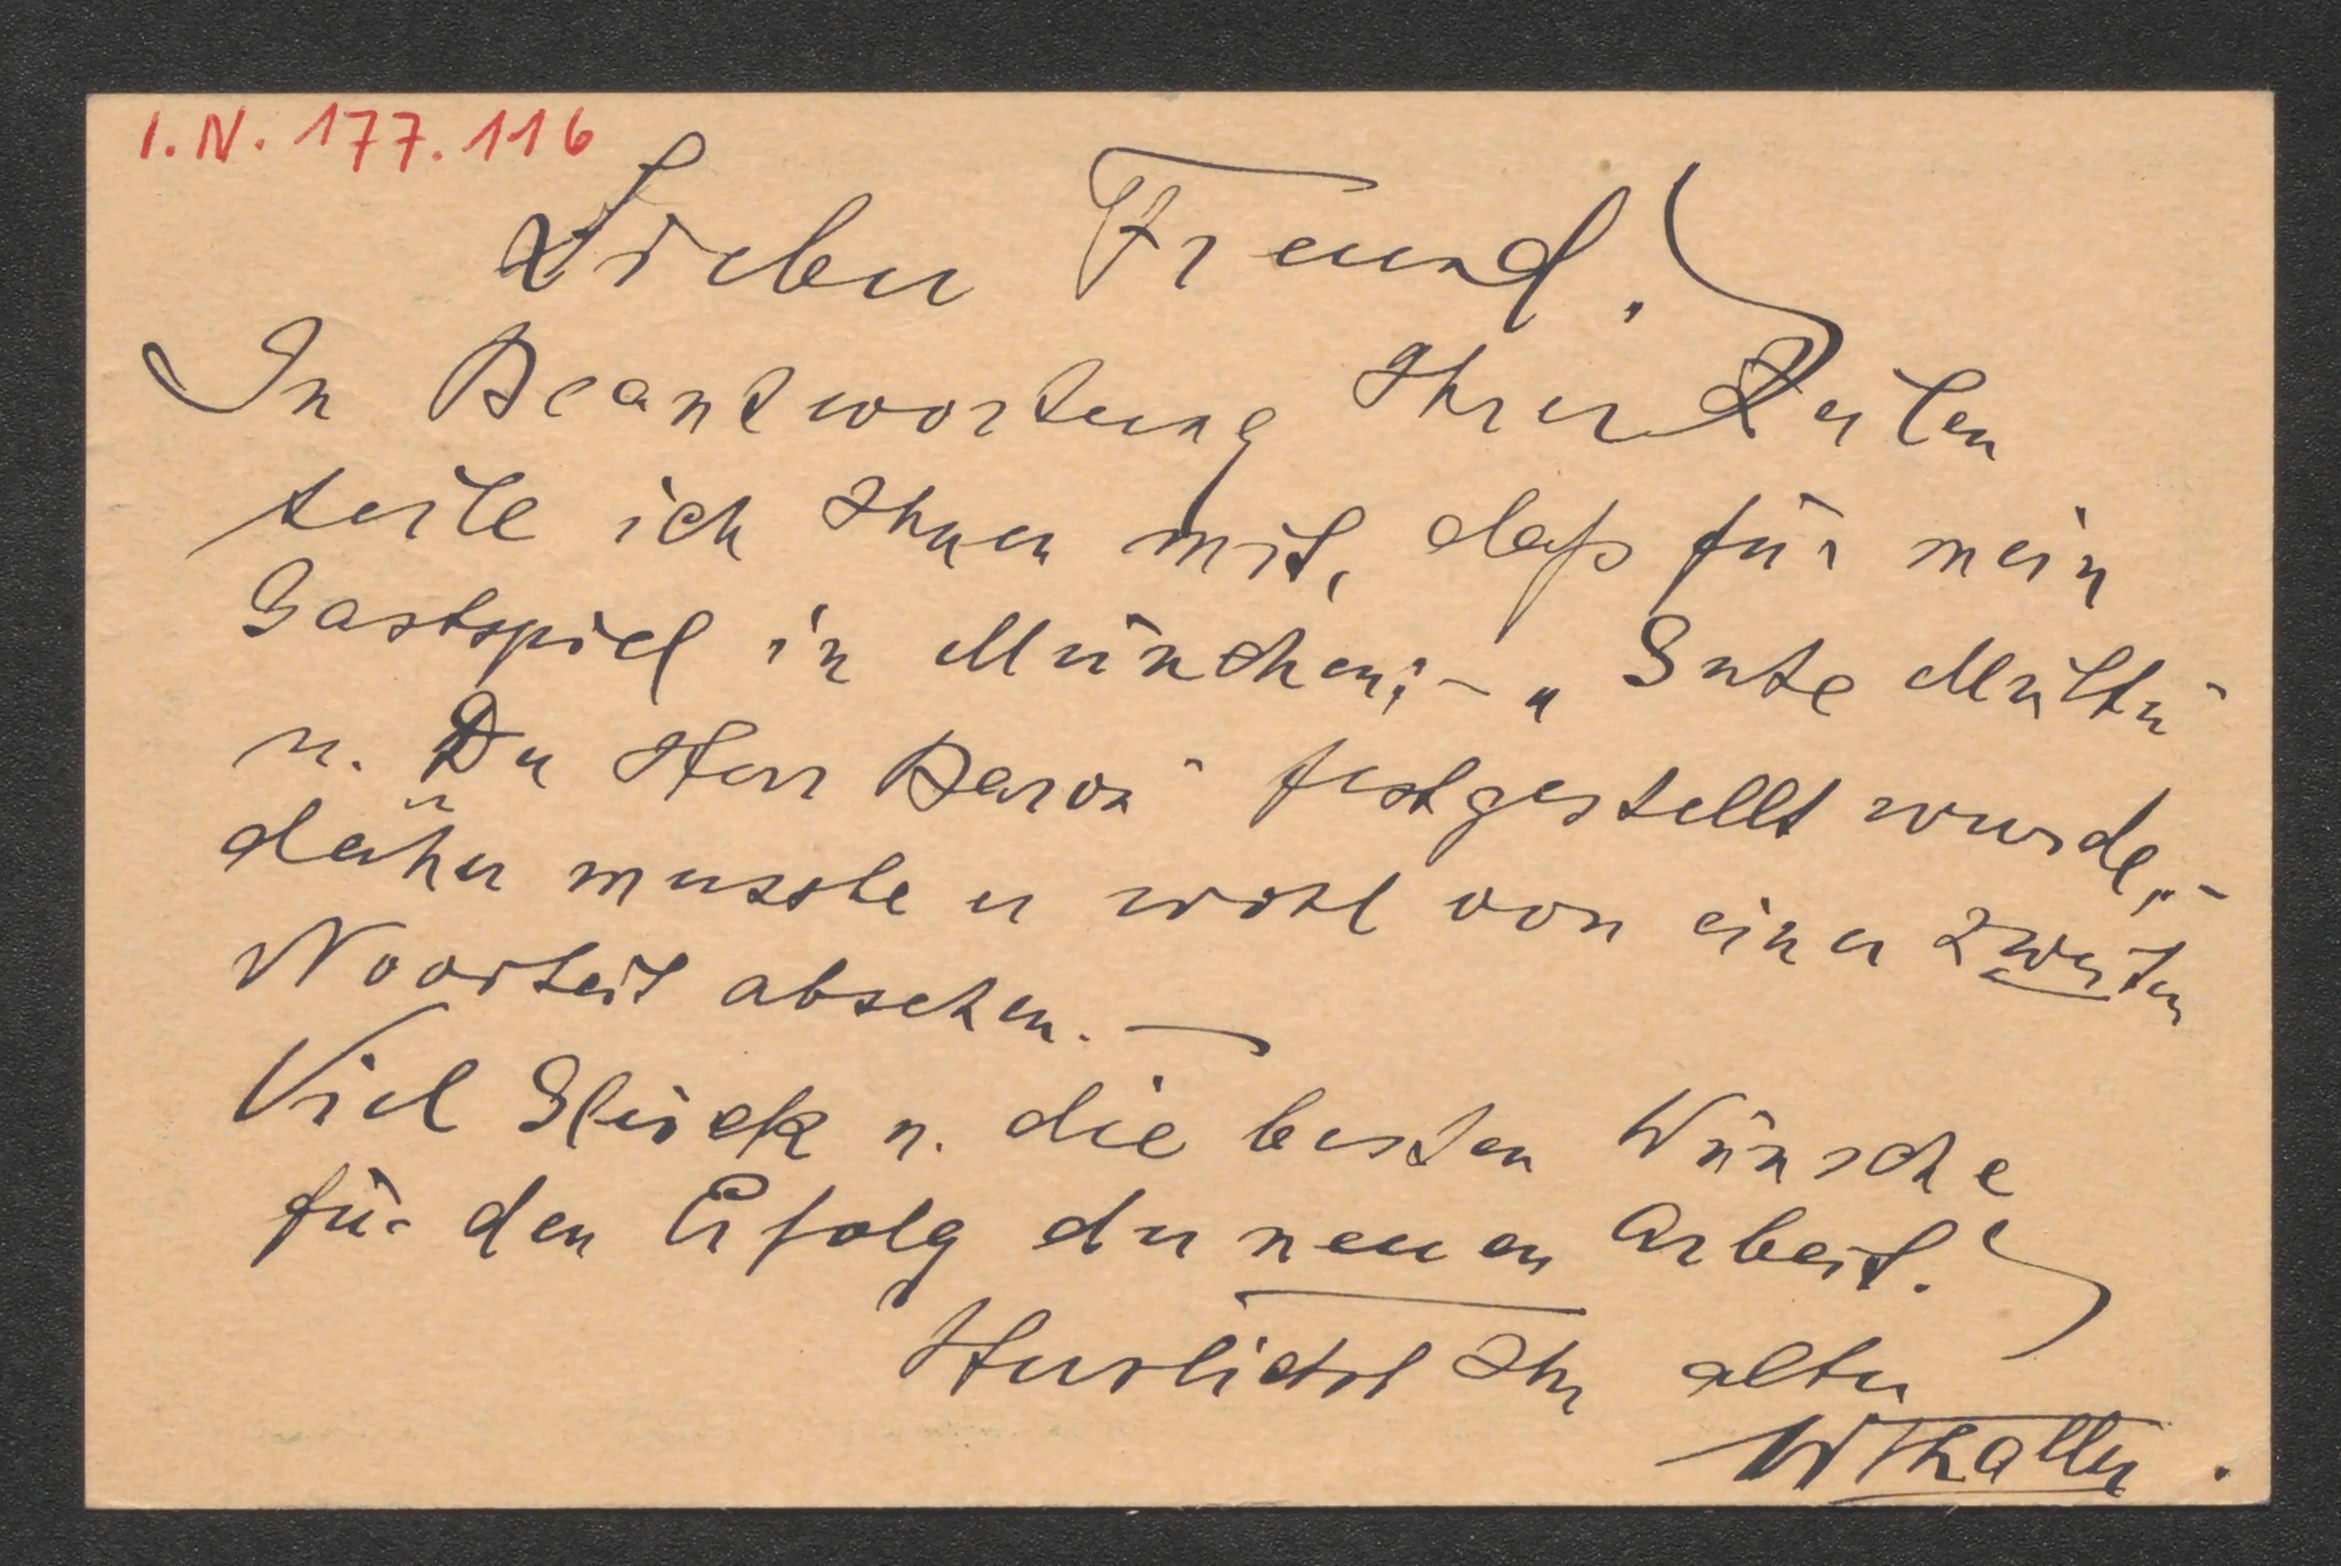 I.N. 177.116
Lieber Freund!
In Beantwortung Ihrer Zeilen
teile ich Ihnen mit, daß für mein
Gastspiel in München; – „Gute Mutter"
u. Der Herr Baron" festgestellt wurde, –
däher musste er wohl von einer zweiten
Novität absehen. —
Viel Glück u. die besten Wünsche
für den Erfolg der neuen Arbeit!
Herzlichst Ihr alter
WThaller.